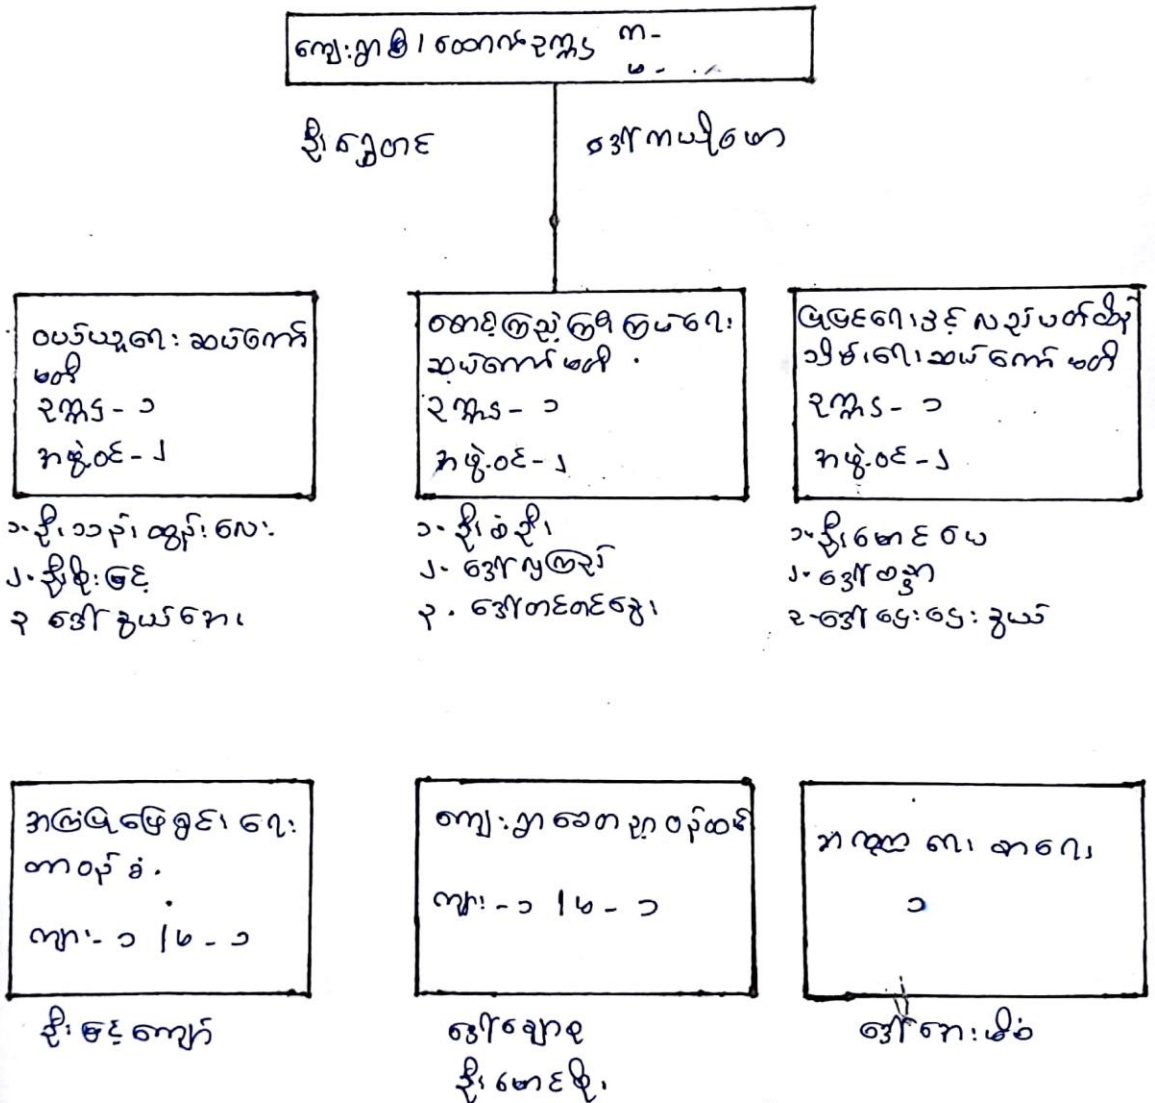 ကျေးရွာစီးထောက်ဥက္ကဌ ကျ-
မ-
ဦးရွှေတင်
ဒေါ်ကယိုဖော
ဝယ်ယူရေး ဆပ်ကော်
မတီ
ဥက္ကဌ - ၁
အဖွဲ့ဝင် - ၂
၁- ဦးသန်းထွန်းလေး
၂- ဦးစိုးမြင့်
၃ ဒေါ်နွယ်အေး
စောင့်ကြည့်ကြီးကြပ်ရေး
ဆပ်ကော်မတီ
ဥက္ကဌ - ၁
အဖွဲ့ဝင် - ၂
၁- ဦးစံဦး
၂- ဒေါ်လှကြည်
၃- ဒေါ်တင်တင်ဆွေ
ပြုပြင်ရေးနှင့် လည်ပတ်ထိန်း
သိမ်းရေးဆပ်ကော်မတီ
ဥက္ကဌ - ၁
အဖွဲ့ဝင် - ၂
၁- ဦးမောင်ဝေ
၂- ဒေါ်စန္ဒာ
၃- ဒေါ်ဌေးဌေးနွယ်
အကြံပြုဖြေရှင်းရေး
တာဝန်ခံ
ကျား - ၁ / မ - ၁
ဦးမြင့်ကျော်
ကျေးရွာစေတနာ့ဝန်ထမ်း
ကျား - ၁ / မ - ၁
ဒေါ်ချောစု
ဦးမောင်စိုး
ဘဏ္ဍာရေးစာရေး
၁
ဒေါ်အေးမိစံ